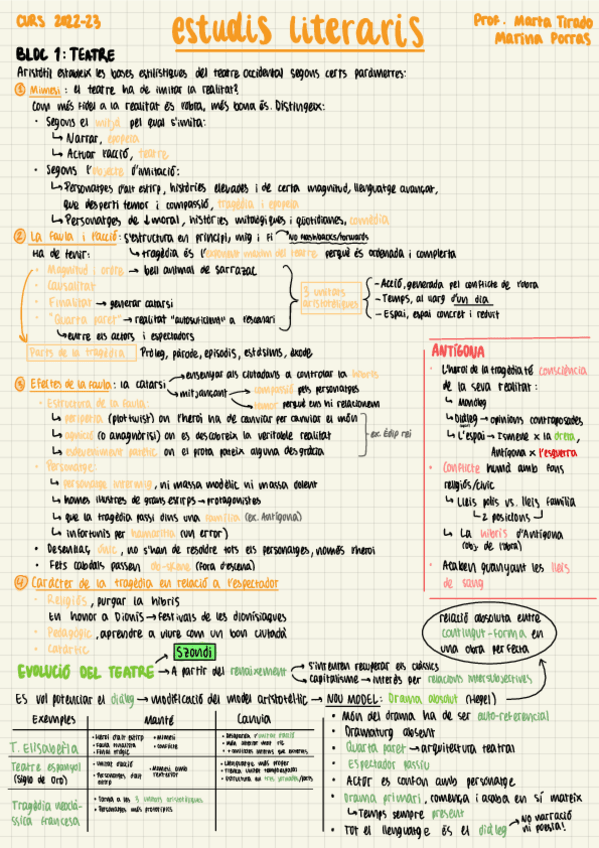 CURS 2022-23
estudis literaris
Prof. Marta Tirado
Marina Porras
BLOC 1: TEATRE
Aristòtil estableix les bases estilístiques del teatre occidental segons certs paràmetres:
① Mimesi: el teatre ha de imitar la realitat?
Com més fidel a la realitat és l'obra, més bona és. Distingeix:
• Segons el mitjà pel qual s'imita:
↳ Narrar, epopeia
↳ Actuar l'acció, teatre
• Segons l'objecte d'imitació:
↳ Personatges d'alt estirp, històries elevades i de certa magnitud, llenguatge avançat,
que desperti temor i compassió, tragèdia i epopeia
↳ Personatges de ↓ moral, històries mitològiques i quotidianes, comèdia
② La faula i l'acció: s'estructura en principi, mig i fi → No flashbacks/forwards
Ha de tenir: ↳ tragèdia és l'exponent màxim del teatre perquè és ordenada i completa
• Magnitud i ordre → bell animal de Sarrazac
• Causalitat
• Finalitat → generar catarsi
• "Quarta paret" → realitat "autosuficient" a l'escenari
↳ entre els actors i espectadors
3 unitats aristotèliques
- Acció, generada pel conflicte de l'obra
- Temps, al llarg d'un dia
- Espai, espai concret i reduït
Parts de la tragèdia Pròleg, pàrode, episodis, estàsims, èxode
③ Efectes de la faula: la catarsi
→ ensenyar als ciutadans a controlar la
→ mitjançant
compassió pels personatges
temor perquè ens hi relacionem
• Estructura de la faula:
↳ peripècia (plot twist) on l'heroi ha de canviar per canviar el món
↳ agnició (o anagnòrisi) on es descobreix la veritable realitat
↳ esdeveniment patètic on el prota pateix alguna desgràcia
ex. Èdip rei
• Personatge:
↳ personatge intermig, ni massa modèlic ni massa dolent
↳ homes il·lustres de grans estirps → protagonistes
↳ que la tragèdia passi dins una família (ex. Antígona)
↳ infortunis per hamartia (un error)
• Desenllaç únic, no s'han de resoldre tots els personatges, només l'heroi
• Fets cabdals passen ob-skene (fora d'escena)
④ Caràcter de la tragèdia en relació a l'espectador
• Religiós, purgar la hibris
En honor a Dionís → festivals de les dionisíaques
• Pedagògic, aprendre a viure com un bon ciutadà
• Catàrtic
ANTÍGONA
• L'heroi de la tragèdia té consciència
de la seva realitat:
↳ Monòleg
↳ Diàleg → opinions contraposades
↳ L'espai → Ismene x la dreta,
Antígona x l'esquerra
• Conflicte humà amb fons
religiós/cívic
↳ Lleis polis vs. lleis família
↳ 2 posicions
↳ La hibris d'Antígona
(obj. de l'obra)
• Acaben guanyant les lleis
de sang
Szondi
EVOLUCIÓ DEL TEATRE → A partir del renaixement
→ s'intenten recuperar els clàssics
→ Capitalisme → interès per relacions intersubjectives
relació absoluta entre
contingut-forma en
una obra perfecta
Es vol potenciar el diàleg → modificació del model aristotèlic → NOU MODEL: Drama absolut (Hegel)
Exemples Manté Canvia
T. Elisabetià
• Heroi d'alt estirp
• Faula finalista
• Final tràgic
• Mimesi
• Conflicte
Teatre espanyol
(Siglo de Oro)
• Unitat acció
• Personatges d'alt estirp
• Llenguatge més proper
Tragèdia neoclà-
ssica francesa
• Torna a les 3 unitats aristotèliques
• Món del drama ha de ser auto-referencial
• Dramaturg absent
• Quarta paret → arquitectura teatral
• Espectador passiu
• Actor es confon amb personatge
• Drama primari, comença i acaba en sí mateix
↳ Temps sempre present
• Tot el llenguatge és el diàleg → No narració
ni poesia!